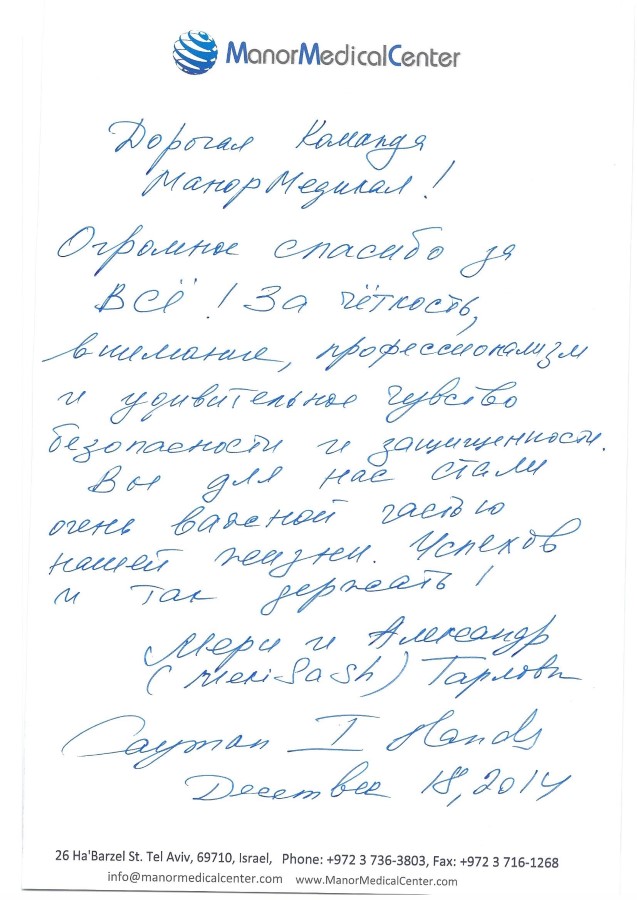 ManorMedicalCenter
Дорогая Команда
МанорМедикал!
Огромное спасибо за
ВСЁ! За чёткость,
внимание, профессионализм
и удивительное чувство
безопасности и защищенности.
Вы для нас стали
очень важной частью
нашей жизни. Успехов
и так держать!
Мери и Александр
(MeriSash) Тарловы
Cayman I Hands
December 18, 2014
26 Ha'Barzel St. Tel Aviv, 69710, Israel, Phone: +972 3 736-3803, Fax: +972 3 716-1268
info@manormedicalcenter.com www.ManorMedicalCenter.com